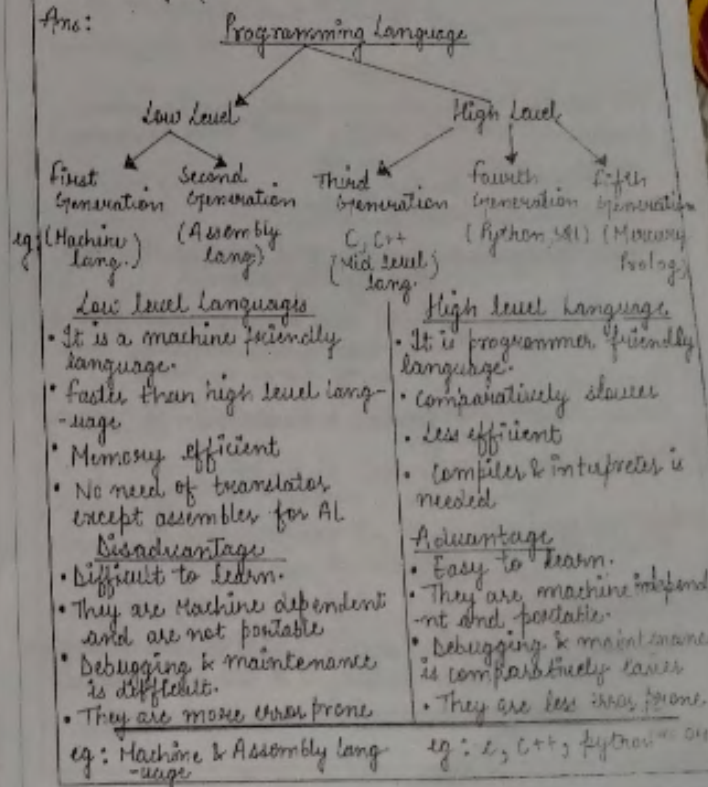 Ans:
Programming Language
Low Level
High Level
First Generation
Second Generation
Third Generation
Fourth Generation
Fifth Generation
eg: (Machine lang.)
(Assembly lang)
C, C++ (Mid level) lang.
(Python, SQL)
(Mercury Prolog)
Low level Languages
• It is a machine friendly
language.
• Faster than high level lang-
-uage
• Memory efficient
• No need of translator
except assembler for AL
Disadvantage
• Difficult to learn.
• They are Machine dependent
and are not portable
• Debugging & maintenance
is difficult.
• They are more error prone
eg: Machine & Assembly Lang
-uage
High level Language
• It is programmer friendly
language.
• Comparatively slower
• Less efficient
• Compiler & interpreter is
needed
Advantage
• Easy to learn.
• They are machine independ
-nt and portable.
• Debugging & maintenanc
is comparatively easier
• They are less error prone
eg: C, C++, Python